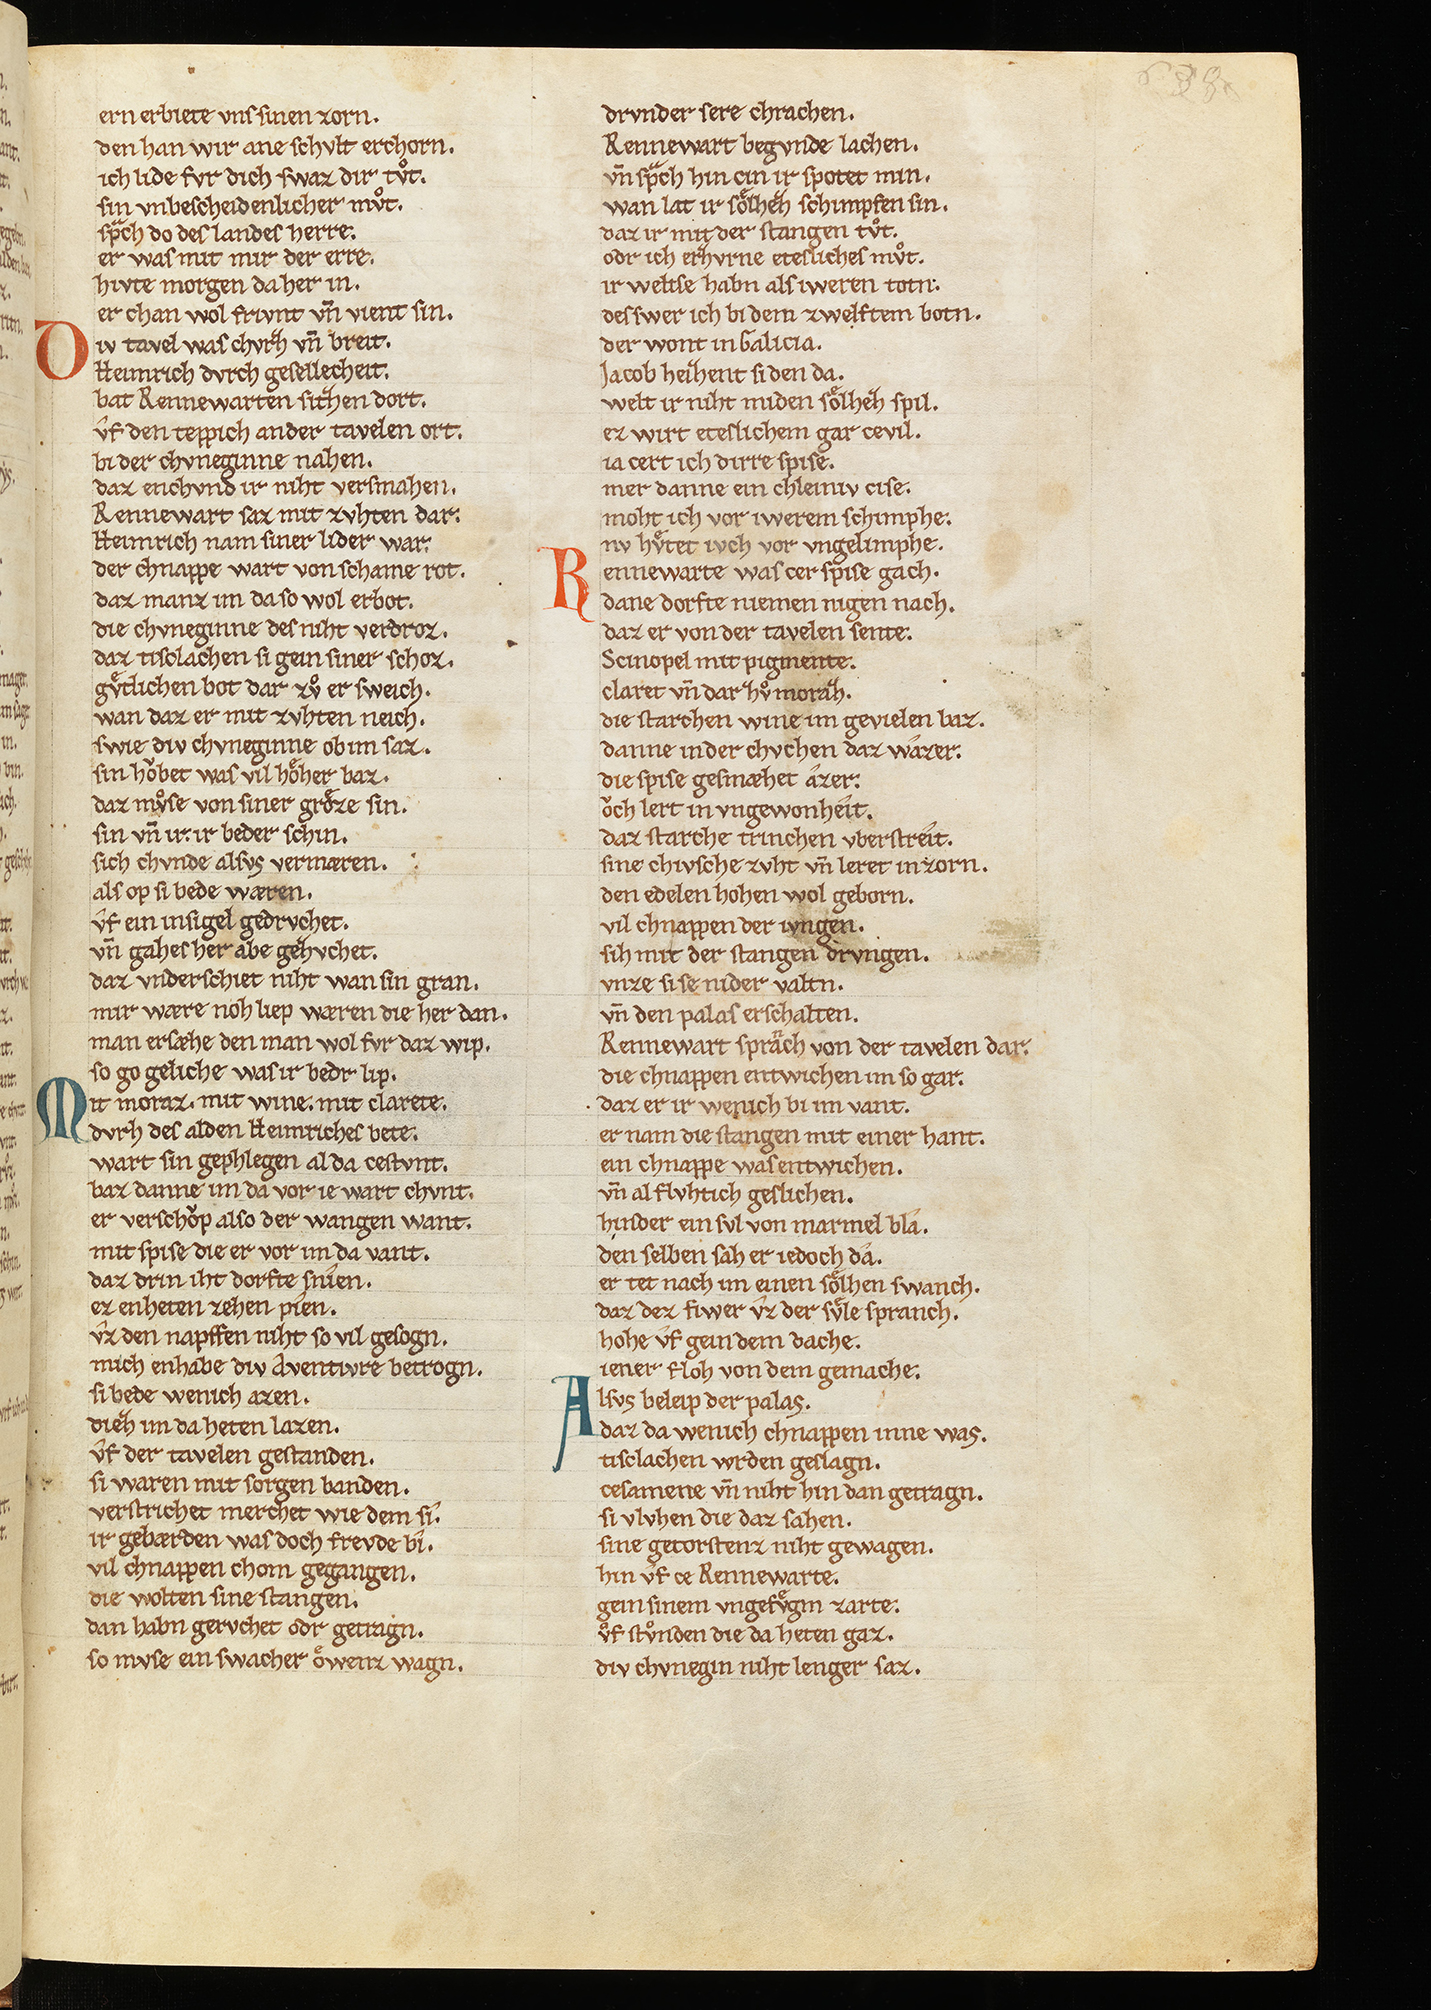 ern erbiete vns sinen zorn.
den han wir ane schvlt erchorn.
ich lide fvr dich swaz dir tvͦt.
sin vnbescheidenlicher mvͦt.
spͣch do des landes herre.
er was mit mir der erre.
hivte morgen da her in.
er chan wol frivnt vn̄ vient sin.
Div tavel was chvrͨh vn̄ breit.
Heimrich dvrch gesellecheit.
bat Rennewarten sitͨhen dort.
vf den teppich an der tavelen ort.
bi der chvneginne nahen.
daz enchvnd ir niht versmahen.
Rennewart saz mit zvhten dar.
Heimrich nam siner lider war.
der chnappe wart von schame rot.
daz manz im da so wol erbot.
die chvneginne des niht verdroz.
daz tisclachen si gein siner schoz.
gvͤtlichen bot dar zvͦ er sweich.
wan daz er mit zvhten neich.
swie div chvneginne ob im saz.
sin hoͮbet was vil hoͤher baz.
daz mvͦse von siner groͤze sin.
sin vn̄ ir: ir beder schin.
sich chvnde alsvs vermæren.
als op si bede wæren.
vf ein insigel gedrvchet.
vn̄ gahes her abe gehvchet.
daz vnderschiet niht wan sin gran.
mir wære noh liep wæren die her dan.
man ersæhe den man wol fvr daz wip.
so go geliche was ir bedr lip.
Mit moraz. mit wine. mit clarete.
dvrh des alden Heimriches bete.
wart sin gephlegen al da cestvnt.
baz danne im da vor ie wart chvnt.
er verschoͮp also der wangen want.
mit spise die er vor im da vant.
daz drin iht dorfte snien.
ez enheten zehen pien.
vz den napffen niht so vil gesogn.
mich enhabe div Aventivre betrogn.
si bede wenich azen.
dieͨh im da heten lazen.
vf der tavelen gestanden.
si waren mit sorgen banden.
verstrichet merchet wie dem si.
ir gebærden was doch frevde bi.
vil chnappen chom gegangen.
die wolten sine stangen.
dan habn gervchet odr getragn.
so mvse ein swacher oͤwenz wagn.
drvnder sere chrachen.
Rennewart begvnde lachen.
vn̄ spͣch hin cin ir spotet min.
wan lat ir soͤlhen schimpfen sin.
daz ir mit der stangen tvͦt.
odr ich erhvrne etesliches mvͦt.
ir weltse habn als iweren totn:
des swer ich bi dem zwelftem botn.
der wont in Galicia.
Jacob heiͨhent si den da.
welt ir niht miden soͤlheͨh spil.
ez wirt eteslichem gar cevil.
ia cert ich dirre spise.
mer danne ein chleiniv cise.
moht ich vor iwerem schimphe.
nv hvͤtet ivch vor vngelimphe.
Rennewarte was cer spise gach.
dane dorfte niemen nigen nach.
daz er von der tavelen sente.
Scinopel mit pigmente.
claret vn̄ dar hvͦ moraͨh.
die starchen wine im gevielen baz.
danne in der chvchen daz wazer.
die spise gesmæhet azer.
oͮch lert in vngewonheit.
daz starche trinchen vberstreit.
sine chivsche zvht vn̄ leret in zorn.
den edelen hohen wol geborn.
vil chnappen der iyngen.
sih mit der stangen drvngen.
vnze si se nider valtn.
vn̄ den palas erschalten.
Rennewart sprͣach von der tavelen dar.
die chnappen entwichen im so gar.
daz er ir wenich bi im vant.
er nam die stangen mit einer hant.
ein chnappe was entwichen.
vn̄ al flvhtich geslichen.
hinder ein svl von marmel bla.
den selben sah er iedoch da.
er tet nach im einen soͤlhen swanch.
daz dez fiwer vz der svͤle spranch.
hohe vf gein dem dache.
iener floh von dem gemache.
Alsvs beleip der palas.
daz da wenich chnappen inne was.
tisclachen wrden geslagn.
cesamene vn̄ niht hin dan getragn.
si vlvhen die daz sahen.
sine getorstenz niht gewagen.
hin vf ce Rennewarte.
gein sinem vngefvͤgin zarte.
vf stvͦnden die da heten gaz.
div chvnegin niht lenger saz.